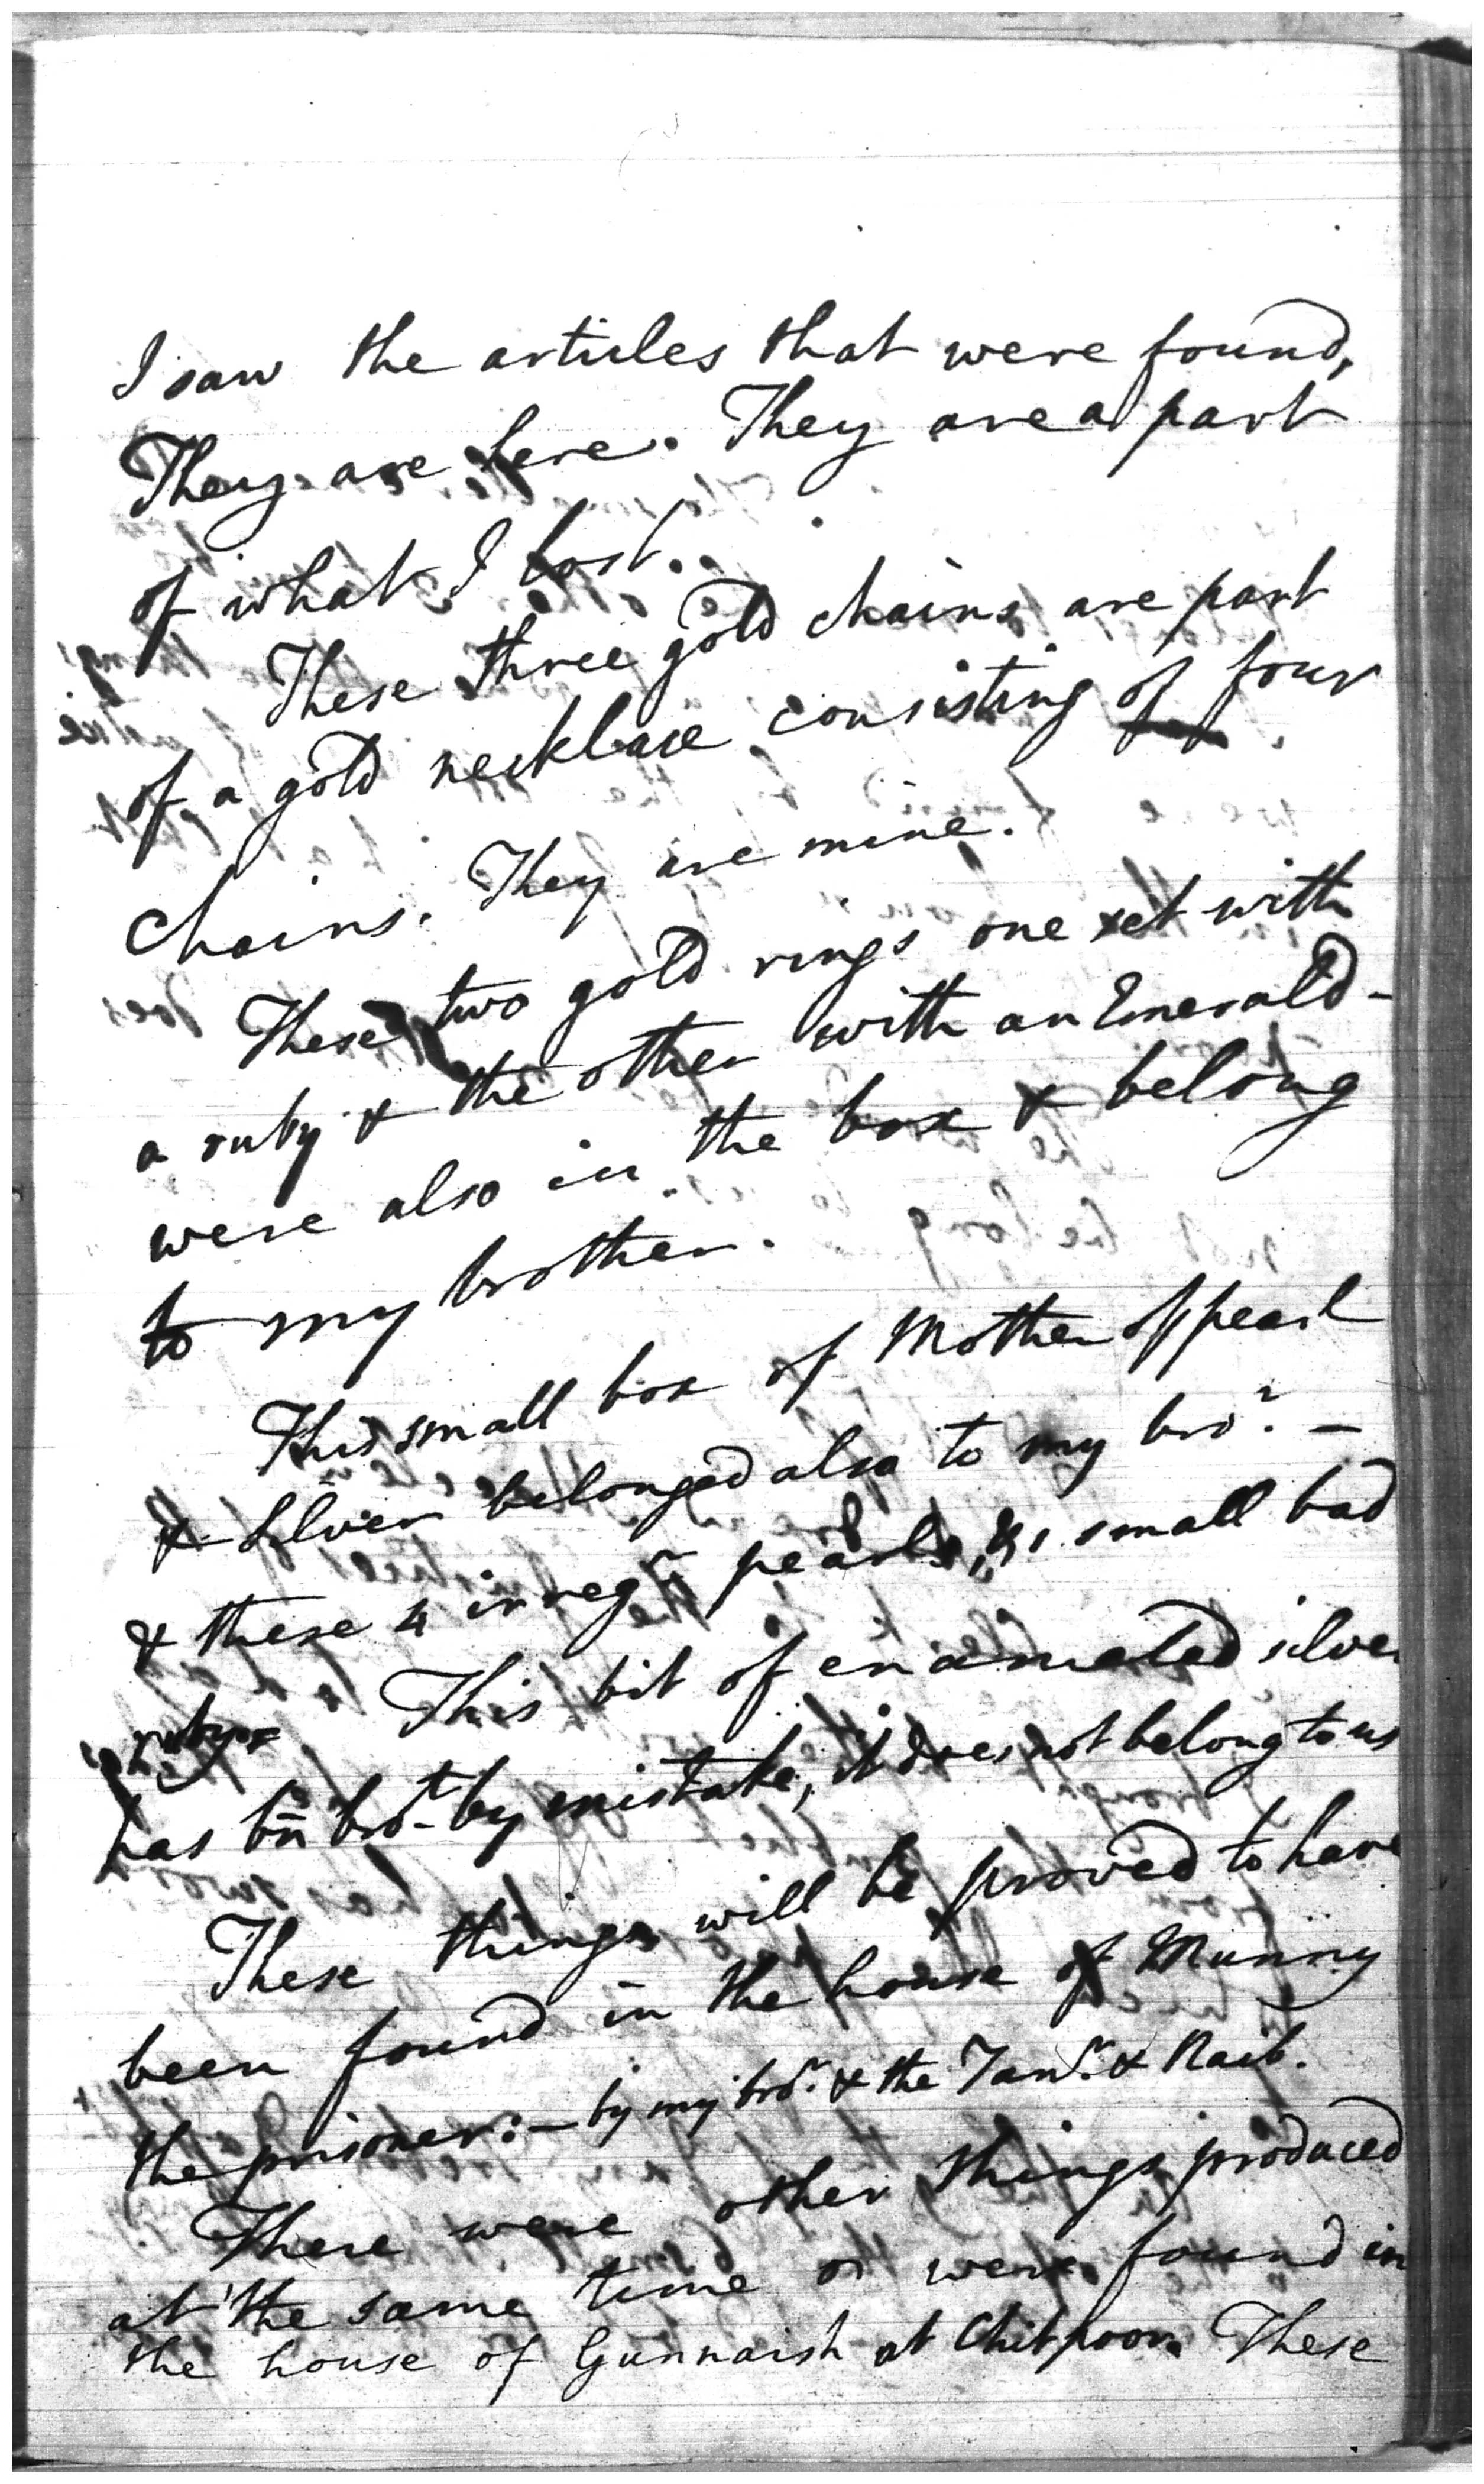 I saw the articles that were found,
They are here. They are a part
of what I lost.
These three gold chains are part
of a gold necklace consisting of four
chains. They are mine.
These two gold rings one set with
a ruby & the other with an Emerald -
were also in the box & belong
to my brother.
This small box of Mother of pearl
& Silver belonged also to my bror. -
& these 4 irregr pearls, & 1 small bad
ruby. This bit of enameled silver
has bn brot by mistake, it does not belong to us
These things will be proved to have
been found in the house of Munny
the prisoner: - by my bror. & the Tanr. & Naib.
There were other things produced
at the same time or were found in
the house of Gunnaish at Chitpoor. These